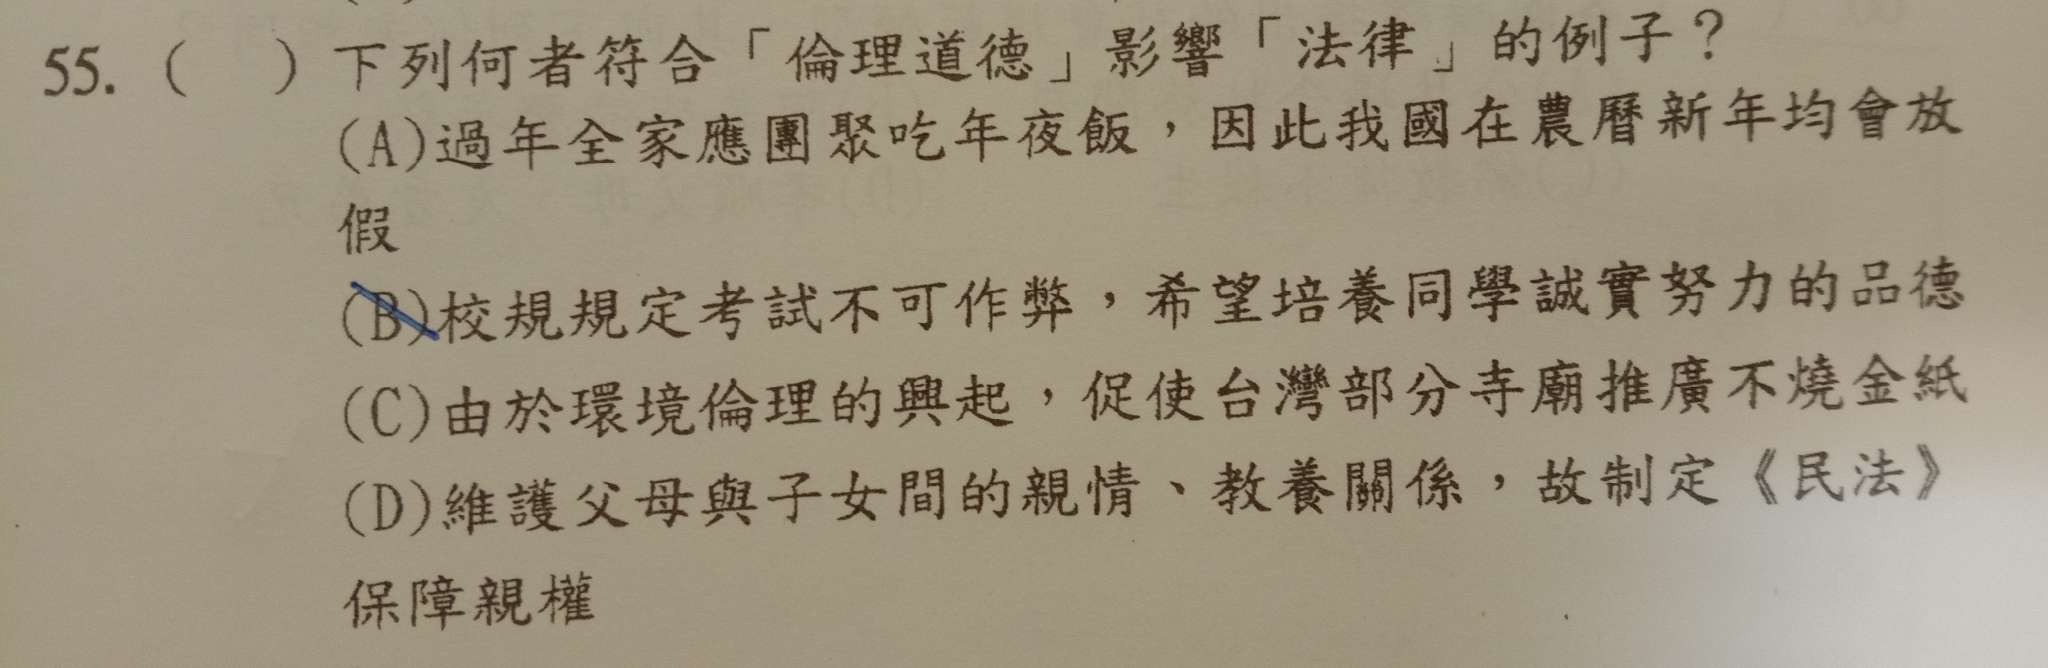 55. (　) 下列何者符合「倫理道德」影響「法律」的例子？
(A)過年全家應團聚吃年夜飯，因此我國在農曆新年均會放
假
(B)校規規定考試不可作弊，希望培養同學誠實努力的品德
(C)由於環境倫理的興起，促使台灣部分寺廟推廣不燒金紙
(D)維護父母與子女間的親情、教養關係，故制定《民法》
保障親權